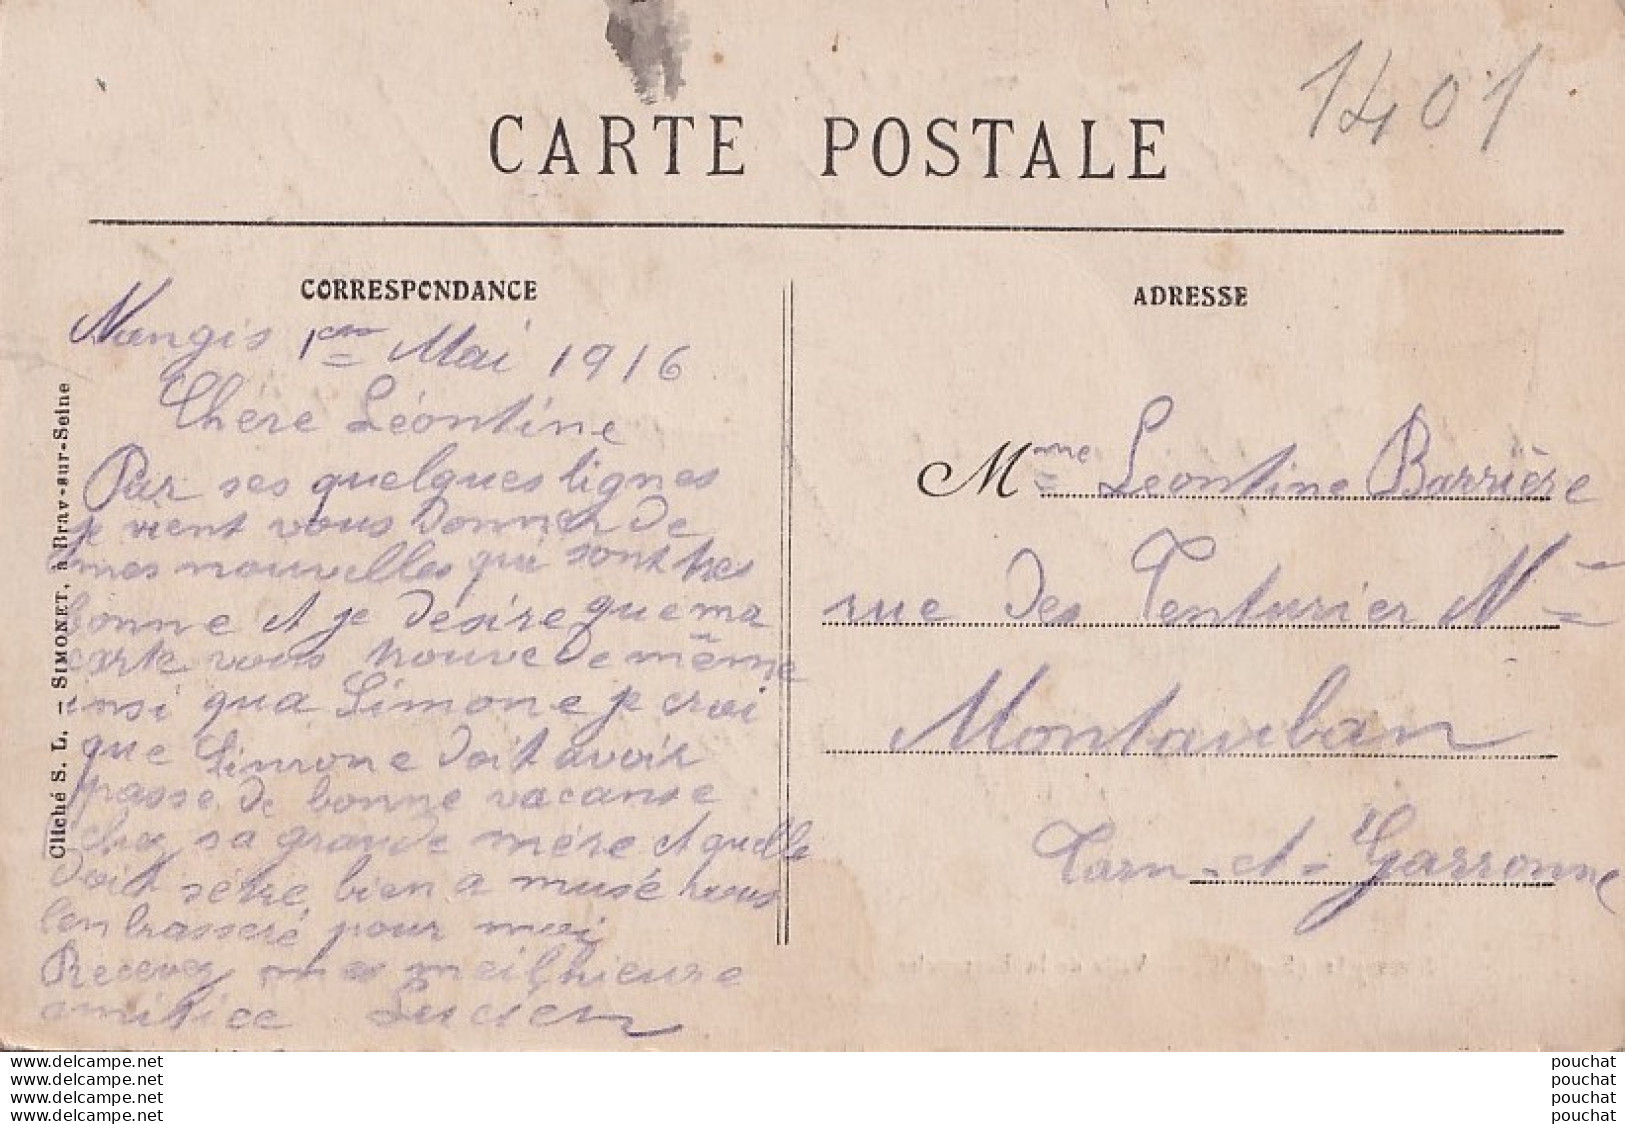 1401
CARTE POSTALE
CORRESPONDANCE
Nangis 1er Mai 1916
Chère Léontine
Par ses quelques lignes
je vient vous donner de
mes nouvelles qui sont tres
bonne et je désire que ma
carte vous trouve de même
insi qua Simone je croi
que Simone doit avoir
passe de bonne vacanse
chez sa grande mère et quelle
doit sêtre bien a musé vous
lenbrasseré pour moi
Recevez mes meilhieure
amitiee Lucien
Cliché S. L. — SIMONET, à Bray-sur-Seine
ADRESSE
Mme Léontine Barrière
rue des Tenturier N
Montauban
Tarn-et-Garronne
www.delcampe.net
www.delcampe.net
www.delcampe.net
www.delcampe.net
pouchat
pouchat
pouchat
pouchat